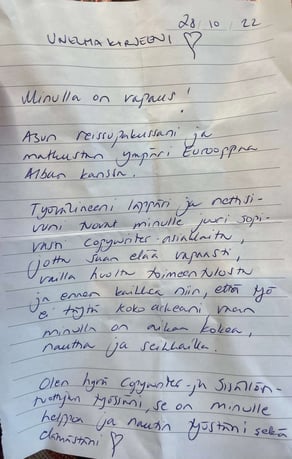 28 / 10 / 22
UNELMAKIRJEENI ♡
Minulla on vapaus!
Asun reissupakussani ja
matkustan ympäri Eurooppaa
Albun kanssa.
Työvälineeni läppäri ja nettisi-
vuni tuovat minulle juuri sopi-
vasti copywriter-asiakkaita,
jotta saan elää vapaasti,
vailla huolta toimeentulosta
ja ennen kaikkea niin, että työ
ei täytä koko arkeani vaan
minulla on aikaa kokea,
nauttia ja seikkailla.
Olen hyvä copywriter- ja sisällön-
tuottajan työssäni, se on minulle
helppoa ja nautin työstäni sekä
elämästäni ♡